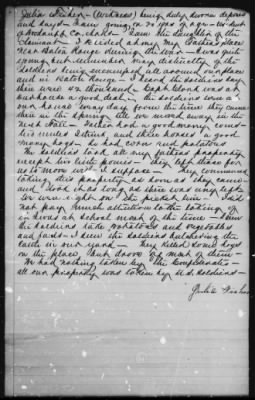 Julia Fisher - (Witness) being duly sworn deposes
and says - I am going on 30 years of age - res. Post
of Woodruff Co. Ark - I am the daughter of the
claimant - I resided at my Father's place
near Baton Rouge during the war - I was quite
young, but remember very distinctly of the
soldiers being encamped all around our place
and in Baton Rouge - I heard the soldiers say
there were 42 thousand - Capt was at
our house a good deal - the soldiers were at
our house every day from the time they came
there in the spring till we moved away in the
next fall - Father had a good many cows -
his mules I think, and three horses a good
many hogs - he had corn and potatoes
The soldiers took all my father's property
except his little ponies - they left these for
us to move with I suppose - They commenced
taking this property as soon as they came
and took it as long as there was any left
We were right on the picket line - I did
not pay much attention to the taking of
it I was at school most of the time - I saw
the soldiers take potatoes and vegetables
and fowls - I saw the soldiers butchering the
cattle in our yard - They killed some hogs
on the place but drove off most of them -
We had nothing taken by the Confederates -
all our property was taken by U.S. Soldiers -
Julia Fisher